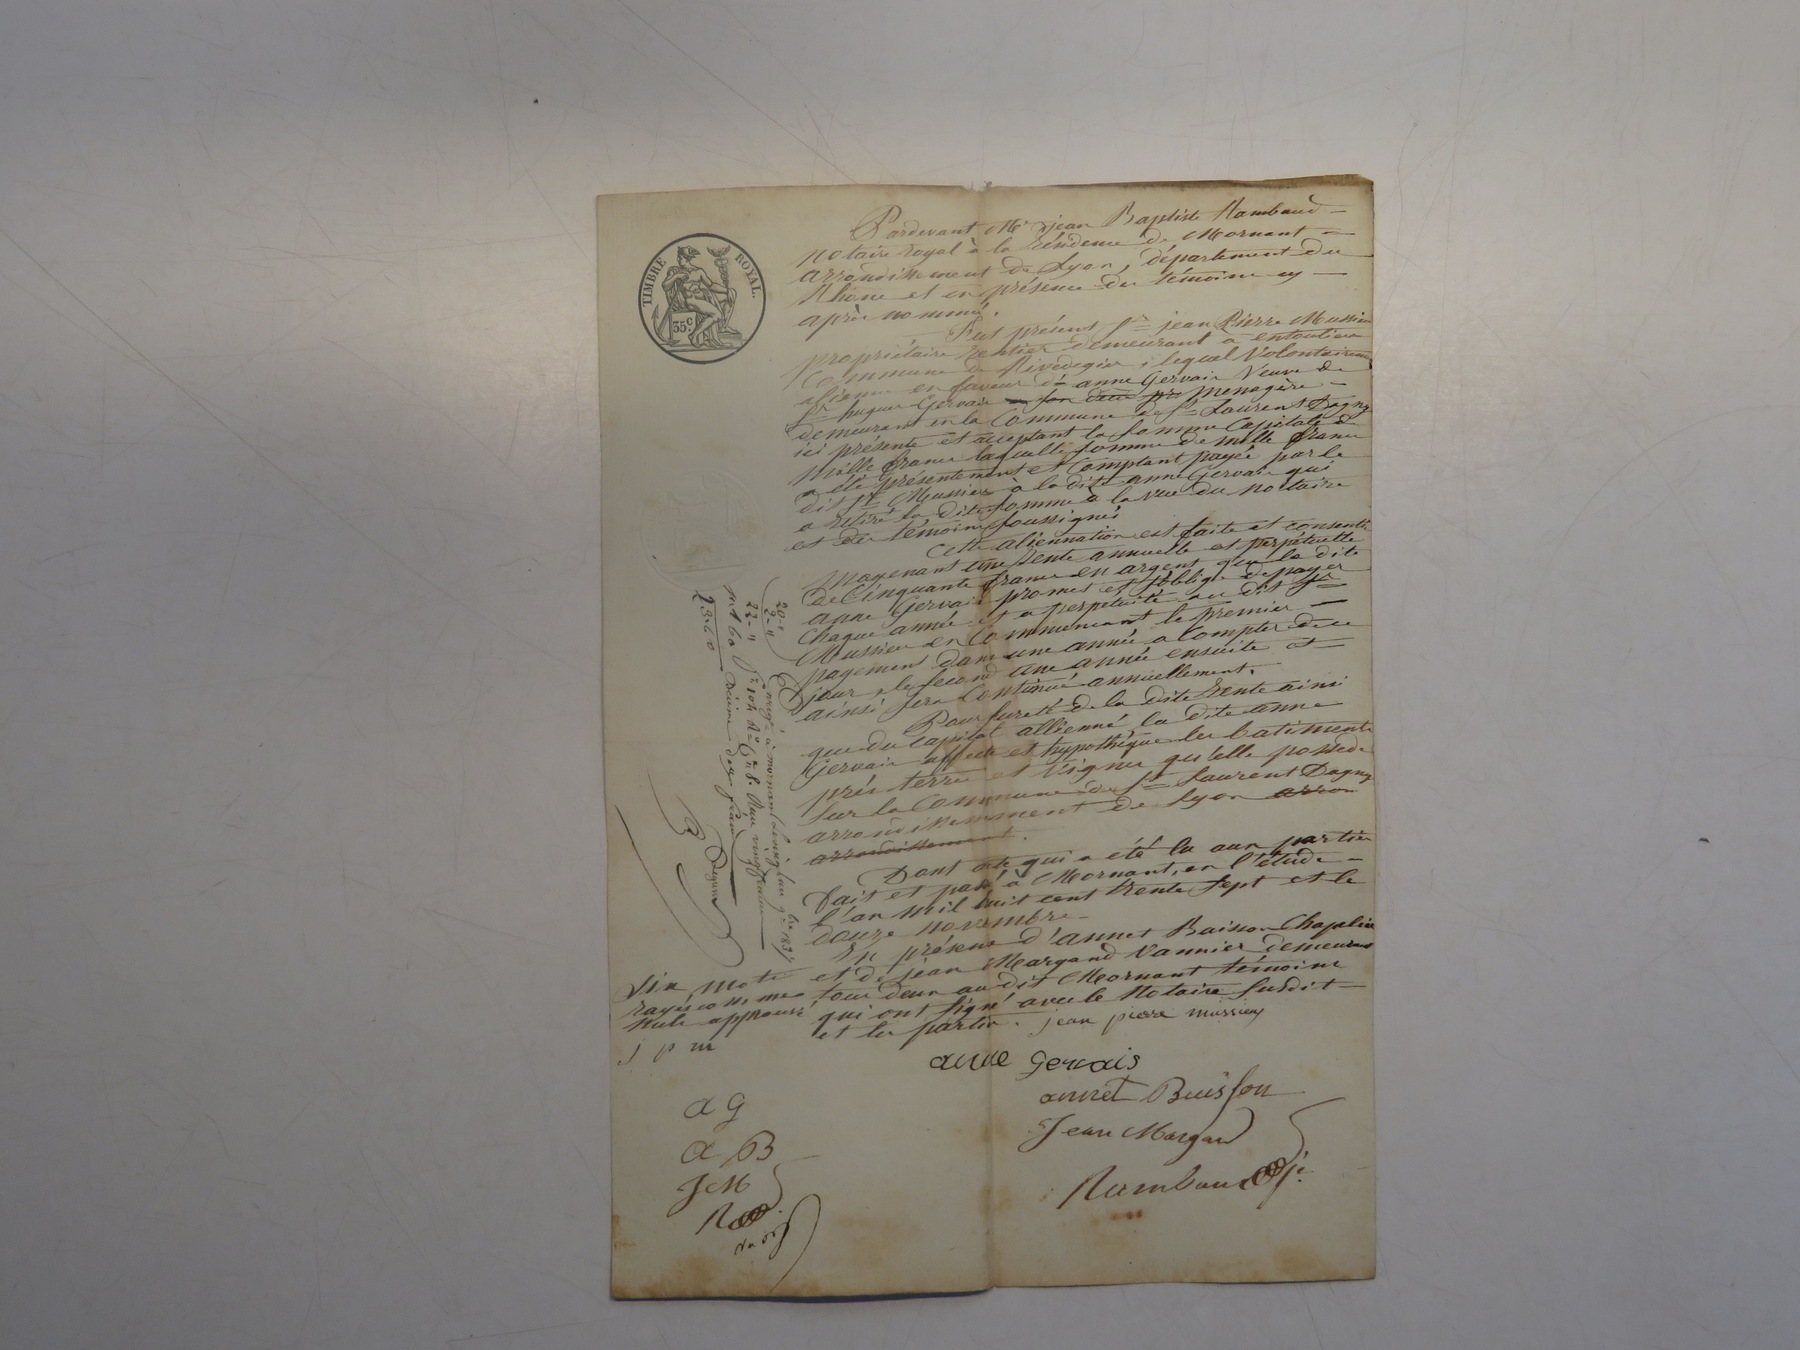 TIMBRE ROYAL.
35c.
Pardevant Me jean Baptiste Rambaud
notaire royal à la résidence de Mornant
arrondissement de Lyon, département du
Rhône et en présence des témoins cy
après nommés.
fut présent sr jean Pierre Mussieu
propriétaire rentier demeurant a
Commune de Riverie, lequel Volontairement
en faveur d' anne Gervais Veuve de
sr hugues Gervais Menagère
demeurant en la Commune de St Laurent Dagny
ici présente et acceptant la somme Capitale de
Mille francs laquelle somme de mille francs
a été présentement et Comptant payée par le
dit sr Mussieu à la dite anne Gervais qui
a retiré la dite somme à la vue du notaire
et des témoins soussignés
Cette aliennation est faite et consentie
moyenant une rente annuelle et perpétuelle
de Cinquante francs en argent que la dite
anne Gervais promet et s'oblige de payer
Chaque année et a perpétuité au dit sr
Mussieu en Commencant le premier
payement dans une année a Compter de ce
jour, le second une année ensuite et
ainsi sera Continué annuellement.
Pour sureté de la dite rente ainsi
que du Capital allienné la dite anne
Gervais affecte et hypothèque les batiments
prés terres et Vignes qu'elle possede
sur la Commune de St Laurent Dagny
arrondissement de Lyon arron
arrondissement.
Dont acte qui a été lu aux parties
fait et passé à Mornant, en l'étude
l'an mil huit cent trente sept et le
douze novembre
En présence d'annet Buisson Chapelier
et de jean Margand Vannier demeurant
tous deux au dit Mornant témoins
qui ont signé avec le Notaire susdit
et les parties. jean pierre mussieu
Six mots
rayés comme
nuls approuvés
j p m
anne Gervais
annet Buisson
Jean Margand
Rambaud
a G
a B
J M
R
20-"
2-"
22-"
Enregé à mornant le vingt un 9bre 1837